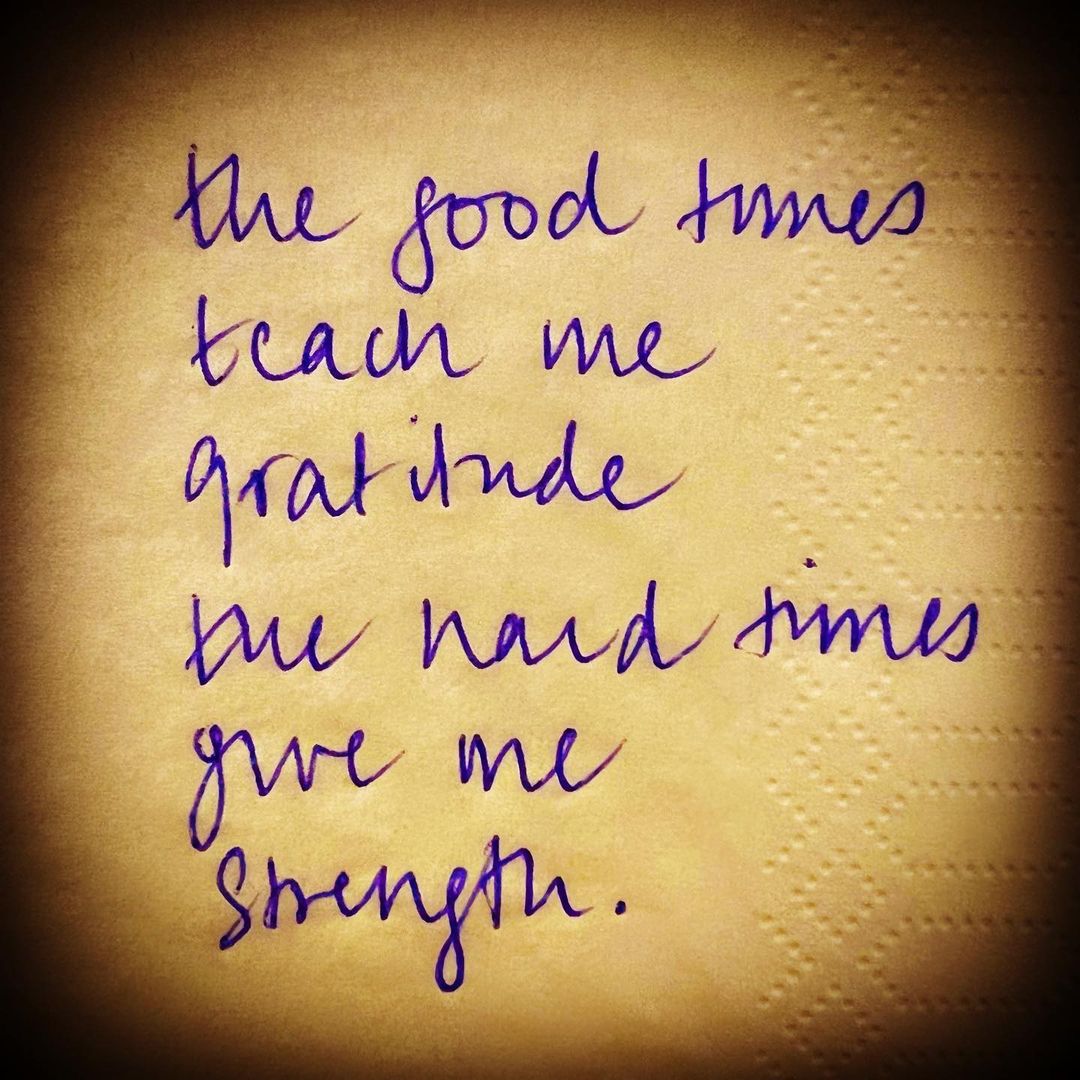 the good times
teach me
gratitude
the hard times
give me
strength.